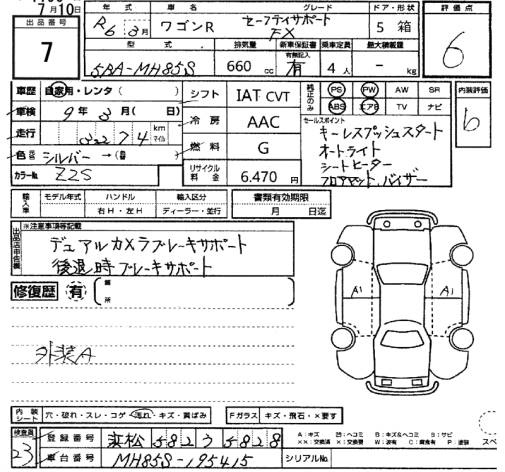 7月10日
出品番号
7
年式 車名 グレード ドア・形状 評価点
R6 3月 ワゴンR セーフティサポート FX 5 箱 6
型式 排気量 新車保証書 乗車定員 最大積載量
有無記入
5AA-MH85S 660cc 有 4人 - kg
車歴 自家用・レンタ( ) シフト IAT CVT 純正のみ PS PW AW SR 内装評価
ABS エアB TV ナビ b
車検 9年3月( 日)
冷房 AAC セールスポイント
走行 02274 km マイル キーレスプッシュスタート
オートライト
色 元色 シルバー →(色 燃料 G シートヒーター
カラーNo. Z2S リサイクル料金 6.470円 フロアマット、バイザー
輸入車 モデル年式 ハンドル 輸入区分 書類有効期限
右H・左H ディーラー・並行 月 日迄
出品店申告表 ※注意事項等記載
デュアルカメラブレーキサポート
後退時ブレーキサポート
修復歴 有 箇所
A1 A1
外装A
内装シート 穴・破れ・スレ・コゲ・汚れ・キズ・黄ばみ Fガラス キズ・飛石・×要す
検査員 23
登録番号 浜松 582 う 5828
車台番号 MH85S-195415 シリアルNo.
A:キズ 凹:ヘコミ B:キズ&ヘコミ S:サビ
××:交換済 ×:交換要 W:波有 C:腐食有 P:塗装